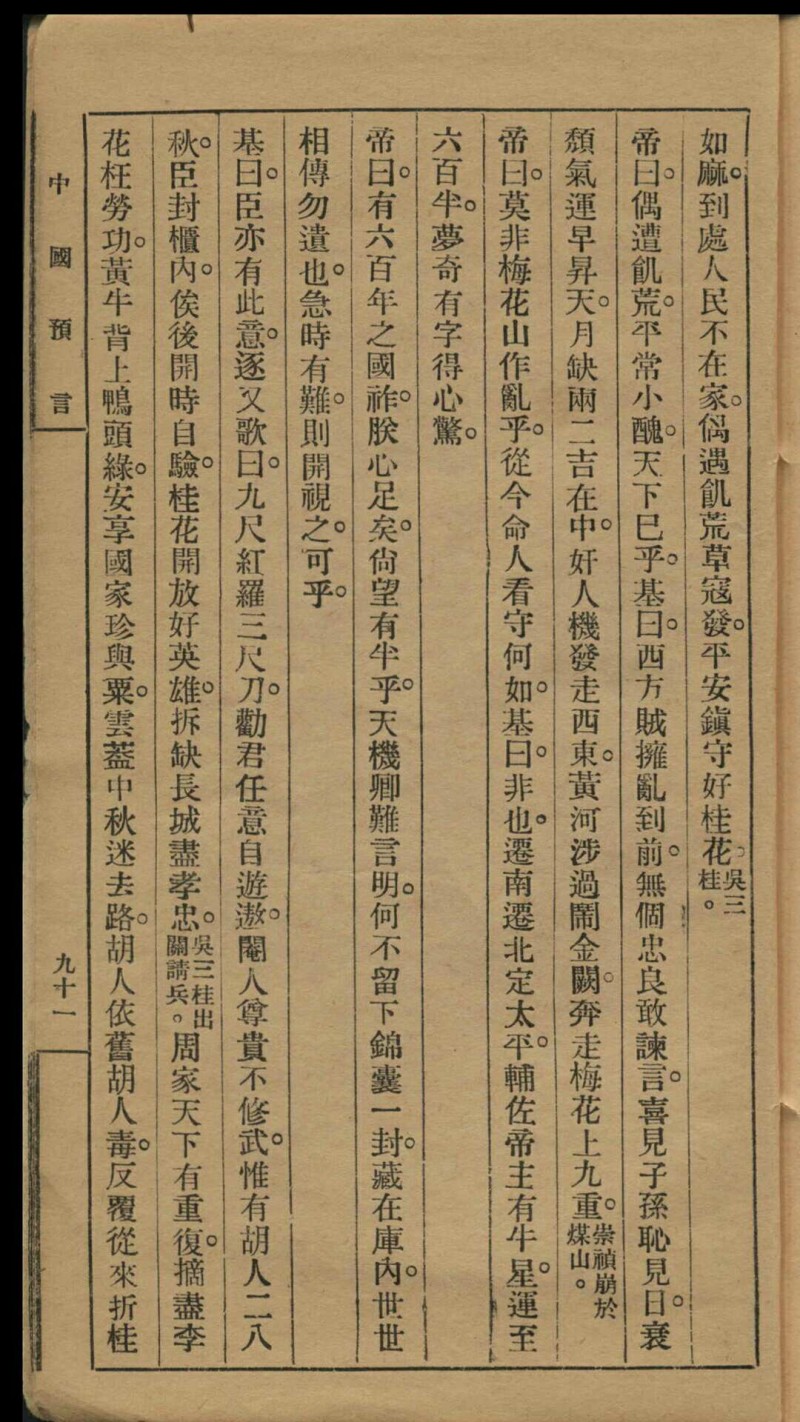 如麻。到處人民不在家。偶遇飢荒草寇發。平安鎭守好桂花。吳三桂。
帝曰。偶遭飢荒。平常小醜。天下已乎。基曰。西方賊擁亂到前。無個忠良敢諫言。喜見子孫恥見日。衰
頹氣運早昇天。月缺兩二吉在中。奸人機發走西東。黃河涉過鬧金闕。奔走梅花上九重。崇禎崩於煤山。
帝曰。莫非梅花山作亂乎。從今命人看守何如。基曰。非也。遷南遷北定太平。輔佐帝主有牛星。運至
六百半。夢奇有字得心驚。
帝曰。有六百年之國祚。朕心足矣。尙望有半乎。天機卿難言明。何不留下錦囊一封。藏在庫內。世世
相傳勿遺也。急時有難。則開視之。可乎。
基曰。臣亦有此意。逐又歌曰。九尺紅羅三尺刀。勸君任意自遊遨。閹人尊貴不修武。惟有胡人二八
秋。臣封櫃內。俟後開時自驗。桂花開放好英雄。拆缺長城盡孝忠。吳三桂出關請兵。周家天下有重復。摘盡李
花枉勞功。黃牛背上鴨頭綠。安享國家珍與粟。雲蓋中秋迷去路。胡人依舊胡人毒。反覆從來折桂
中國預言
九十一